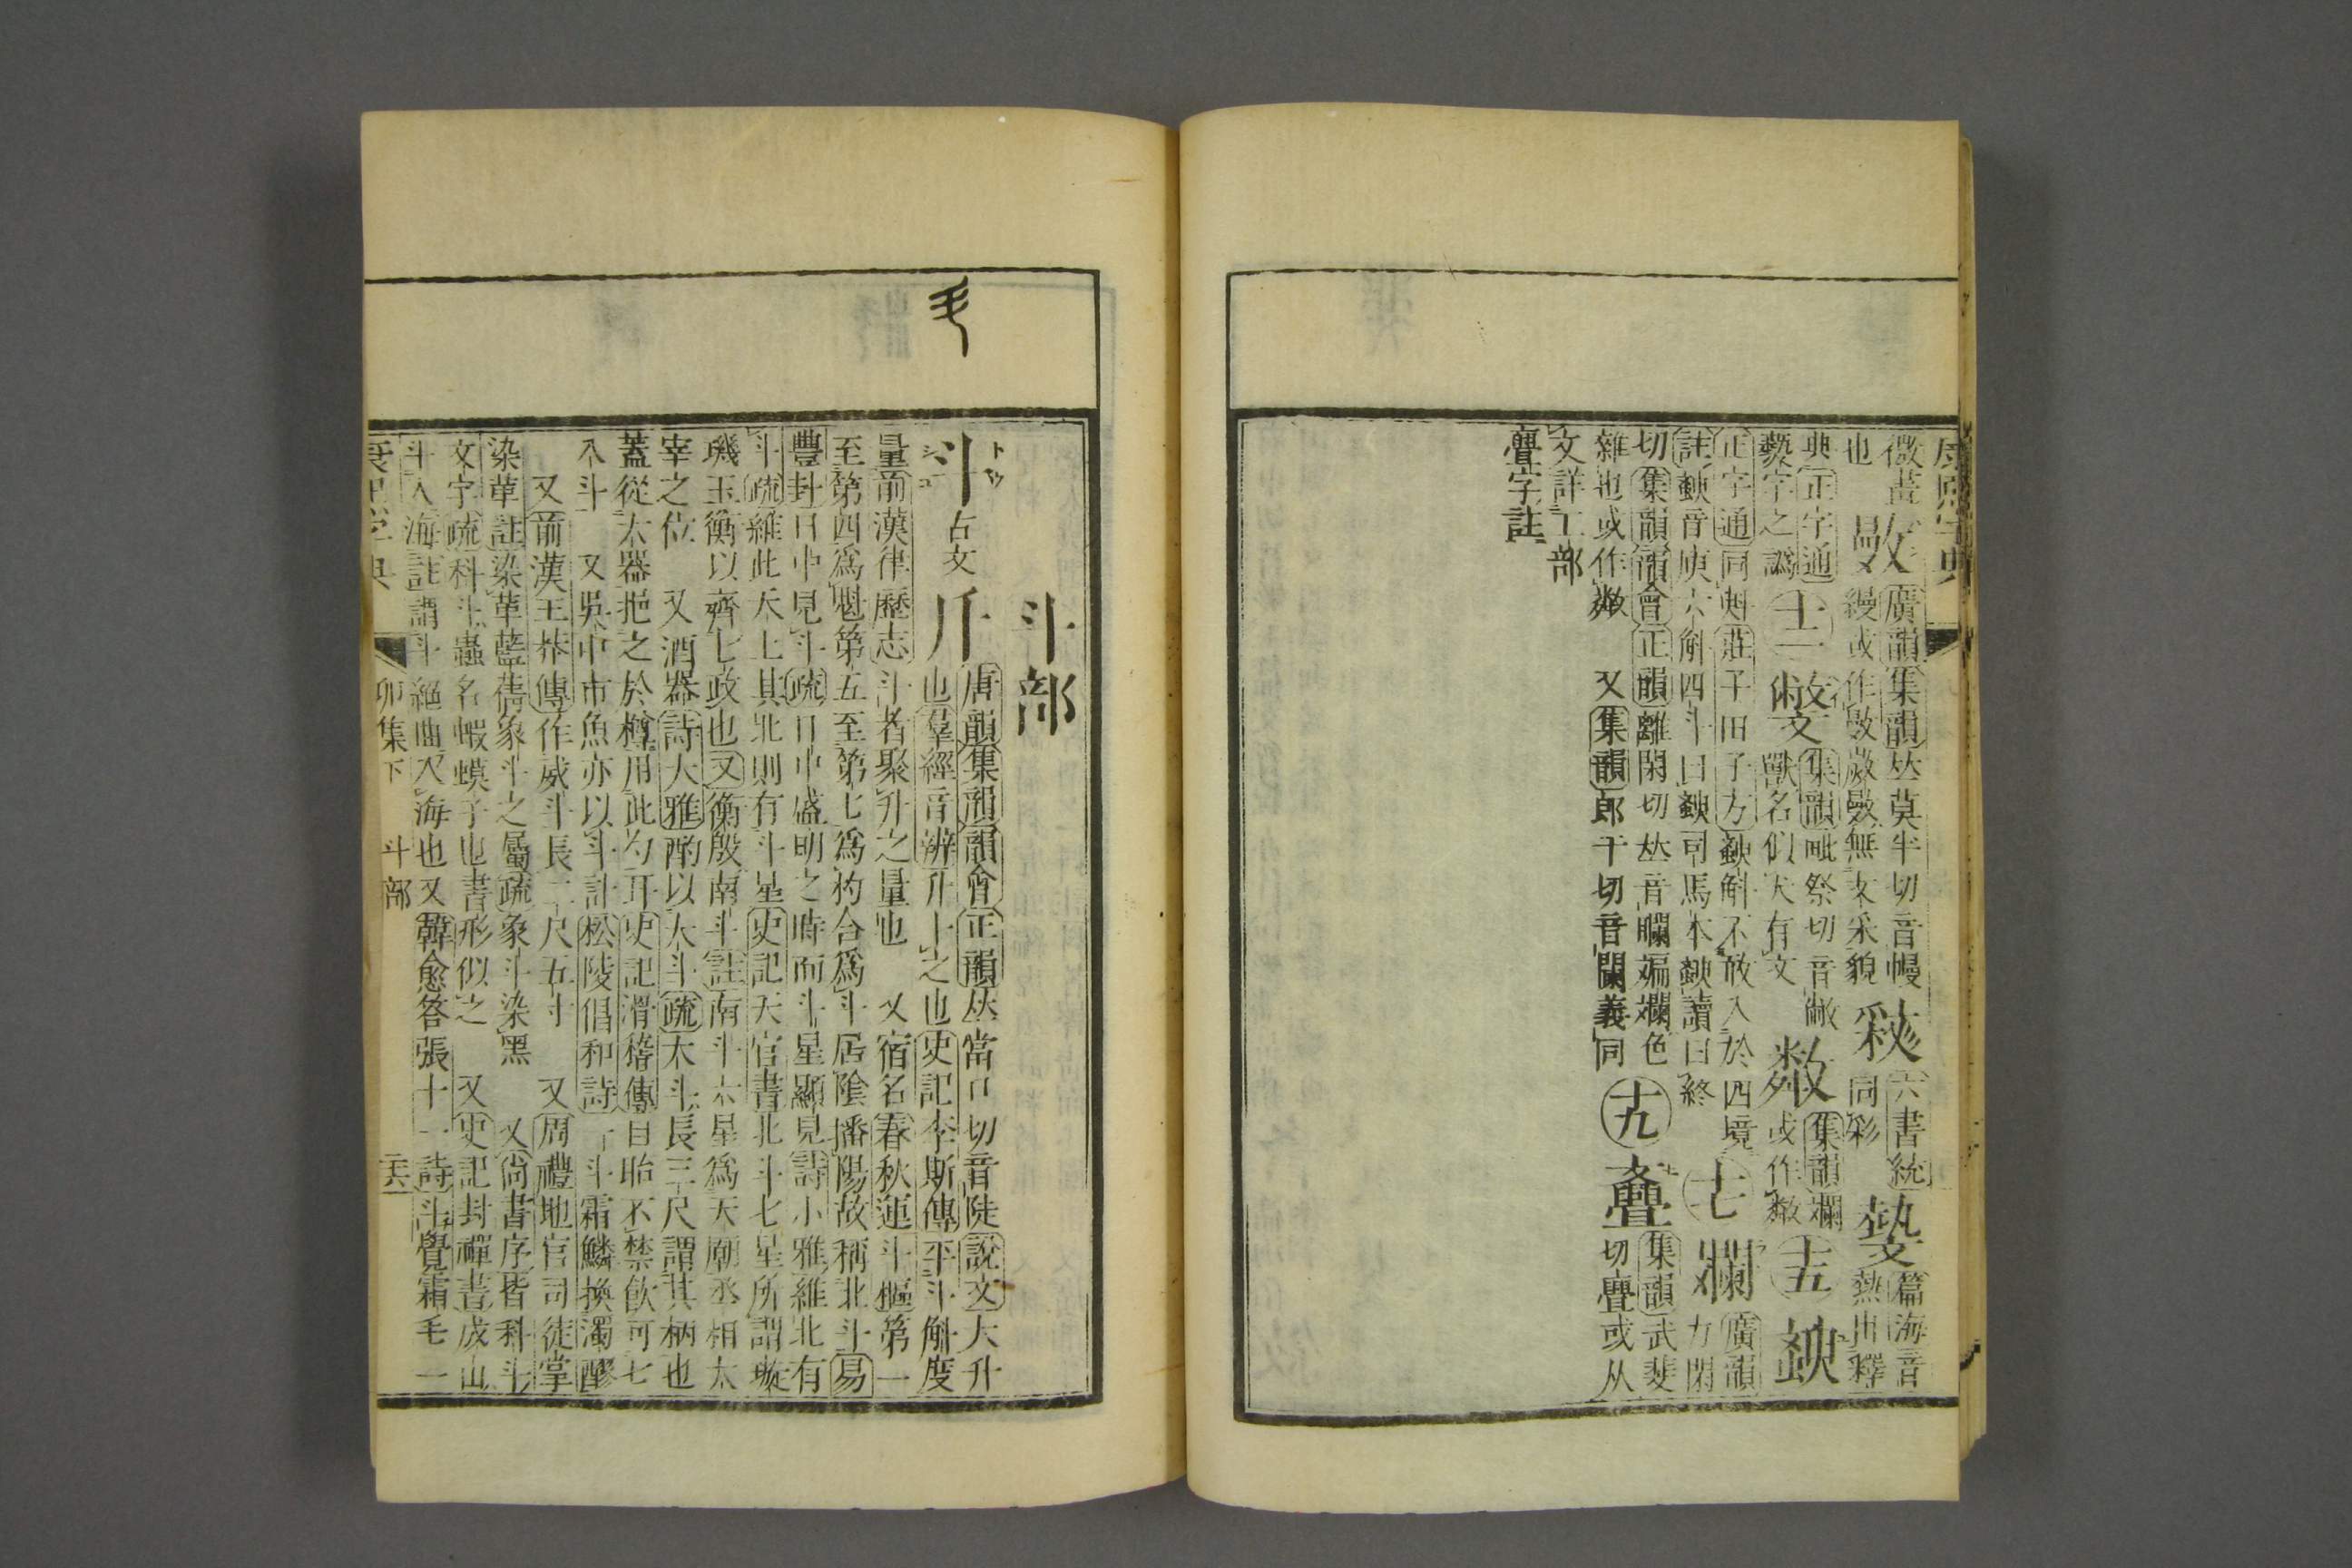 康熙字典
微畫
𢿜
廣韻集韻𠀤莫半切音幔
也
縵或作𢿜𢿜𢿜無文采貌
六書統
同彩
篇海音
熱出釋
典正字通
藝字之譌
十二
集韻毗祭切音敝
獸名似犬有文
集韻斕
或作斃
十五
正字通同㪺莊子田子方斔斛不敢入於四境
註斔音庾六斛四斗曰斔司馬本斔讀曰終
十七
斕
廣韻力閑
切集韻韻會正韻離閑切𠀤音斕斒斕色
雜也或作㪫
又集韻郎干切音闌義同
十九
斖
集韻武斐
切亹或从
文詳亠部
亹字註
斗部
トウ
シュ
斗
古文
唐韻集韻韻會正韻𠀤當口切音陡說文大升
也羣經音辨升十之也史記李斯傳平斗斛度
量前漢律歷志斗者聚升之量也 又宿名春秋運斗樞第一
至第四爲魁第五至第七爲杓合爲斗居陰播陽故稱北斗易
豐卦日中見斗疏日中盛明之時而斗星顯見詩小雅維北有
斗疏維此天上其北則有斗星史記天官書北斗七星所謂璇
璣玉衡以齊七政也又衡殷南斗註南斗六星爲天廟丞相太
宰之位 又酒器詩大雅酌以大斗疏大斗長三尺謂其柄也
蓋從大器挹之於樽用此勺耳史記滑稽傳目眙不禁飮可七
八斗 又吳中市魚亦以斗計松陵倡和詩一斗霜鱗換濁醪
又前漢王莽傳作威斗長二尺五寸 又周禮地官司徒掌
染草註染草藍蒨象斗之屬疏象斗染黑 又尚書序皆科斗
文字疏科斗蟲名蝦蟆子也書形似之 又史記封禪書成山
斗入海註謂斗絕曲入海也又韓愈答張十一詩斗覺霜毛一
康熙字典
卯集下
斗部
二十六